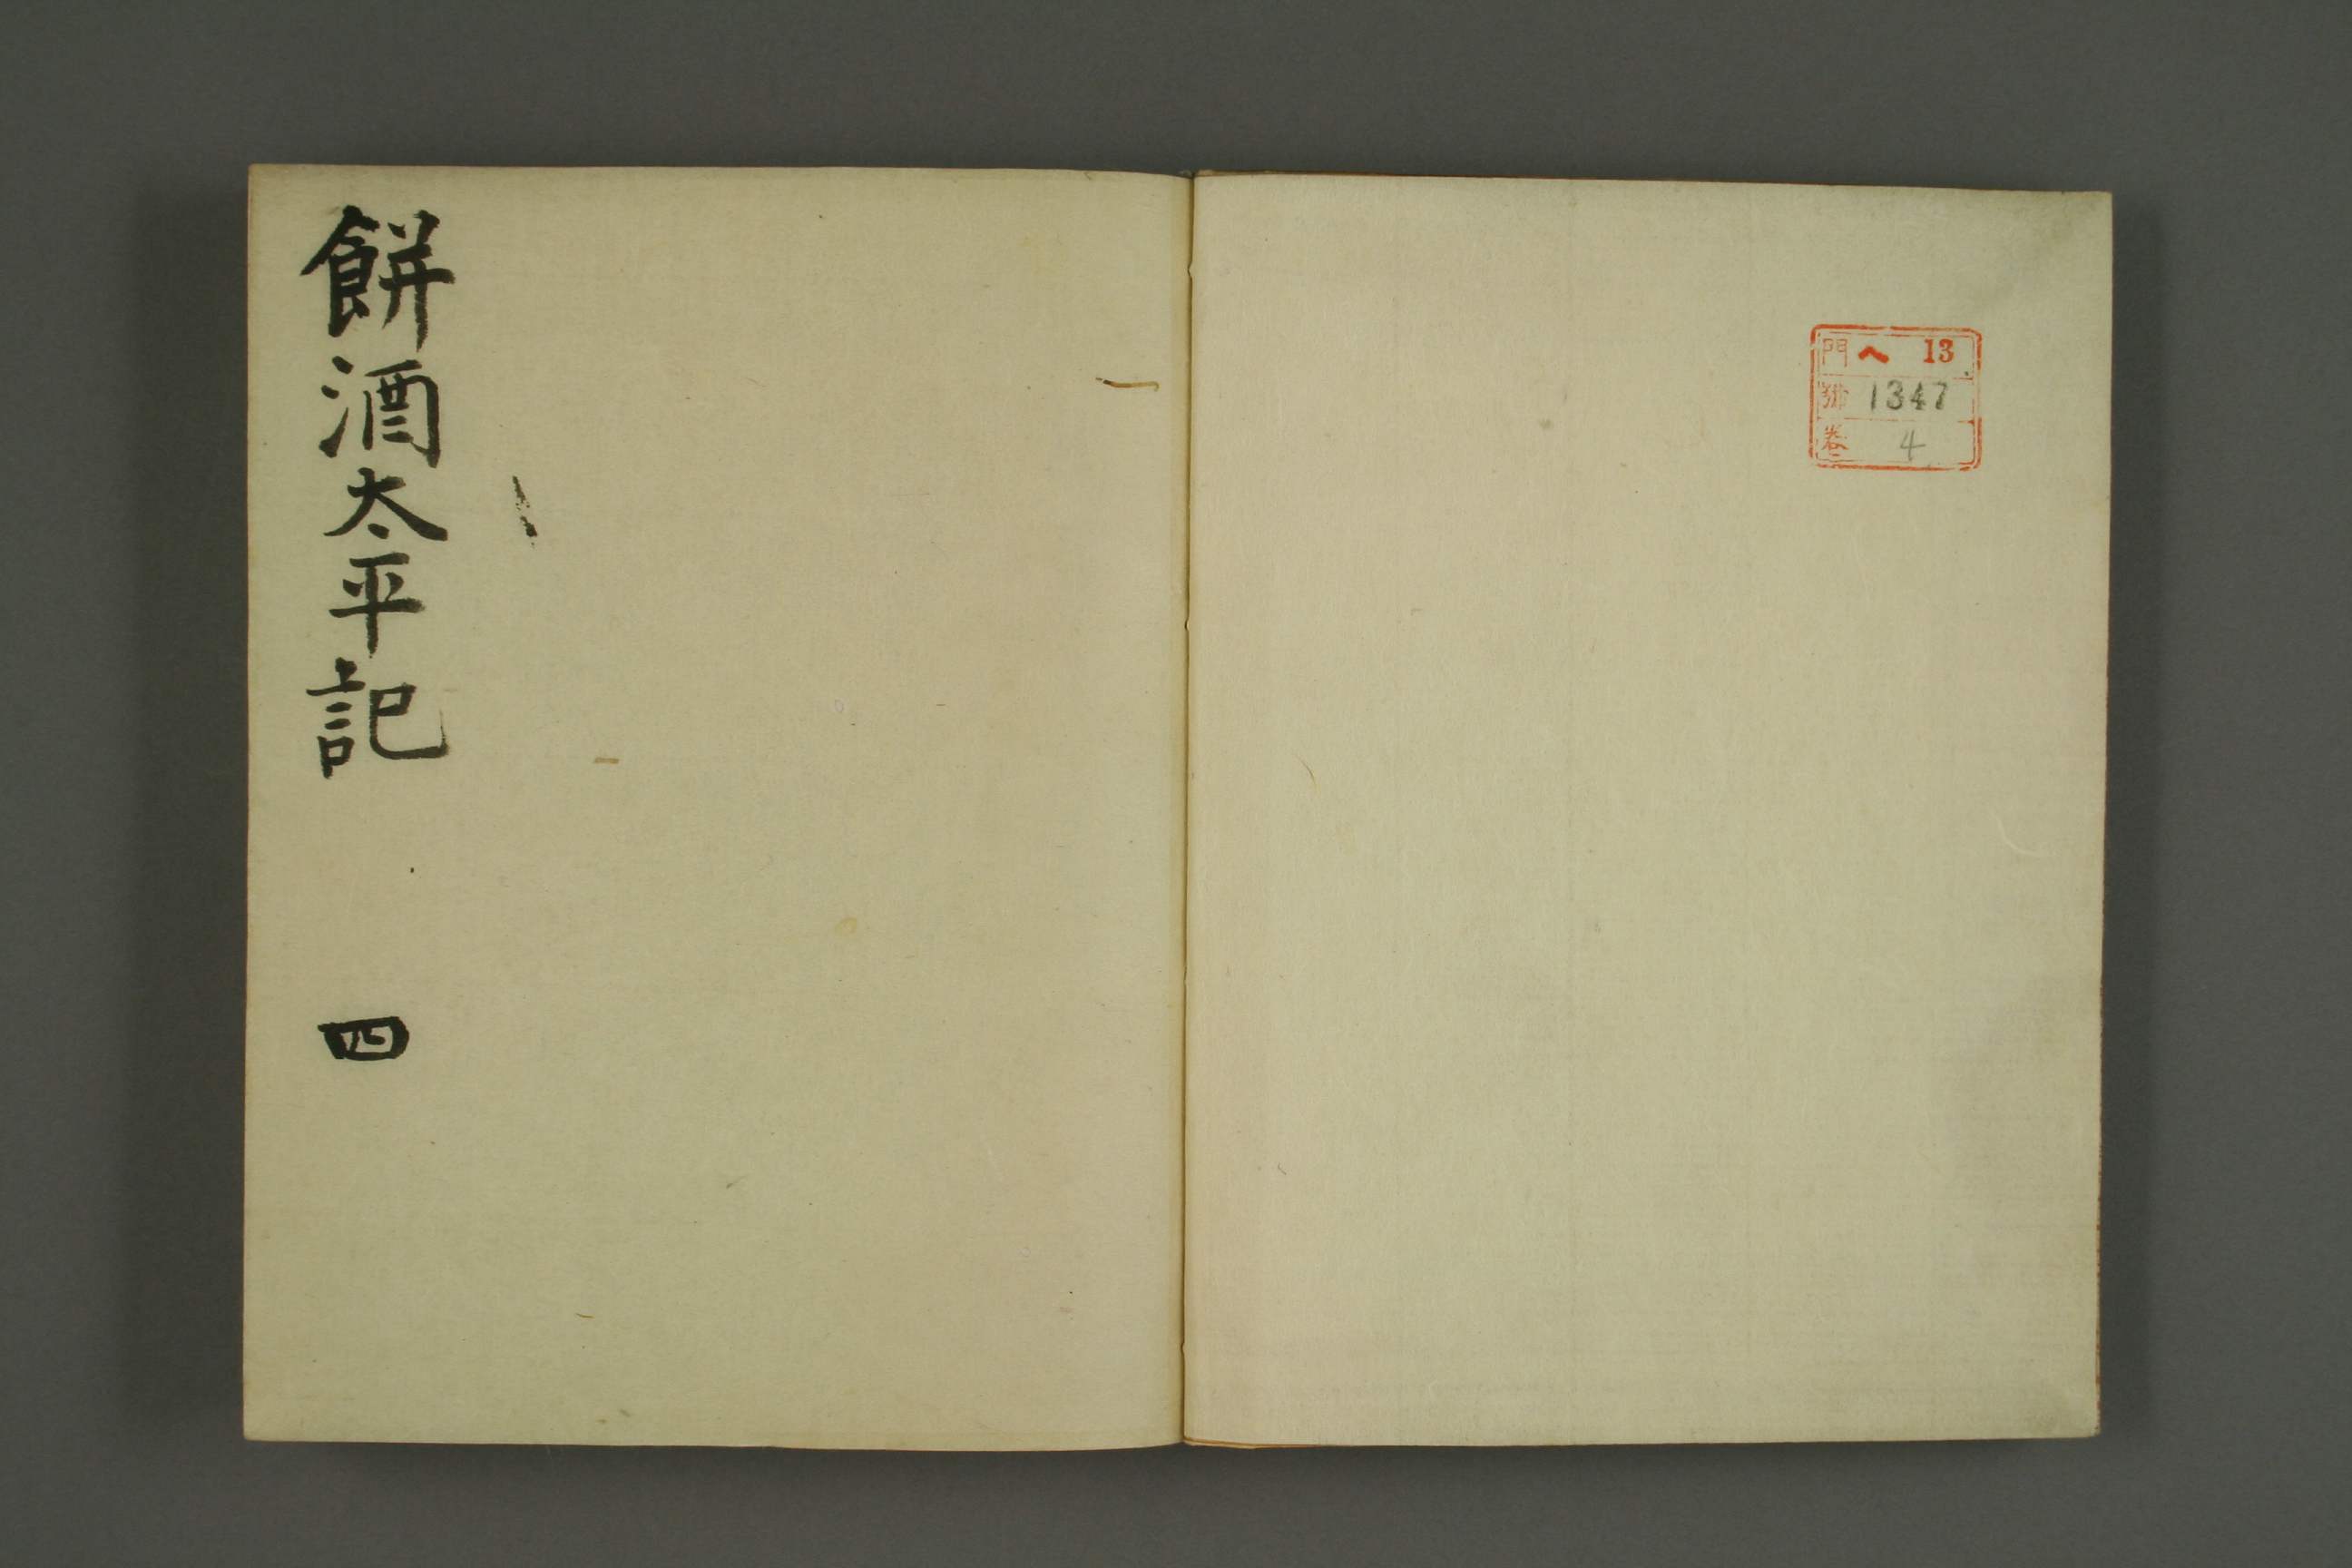 門 へ 13
號 1347
卷 4
餅酒太平記 四